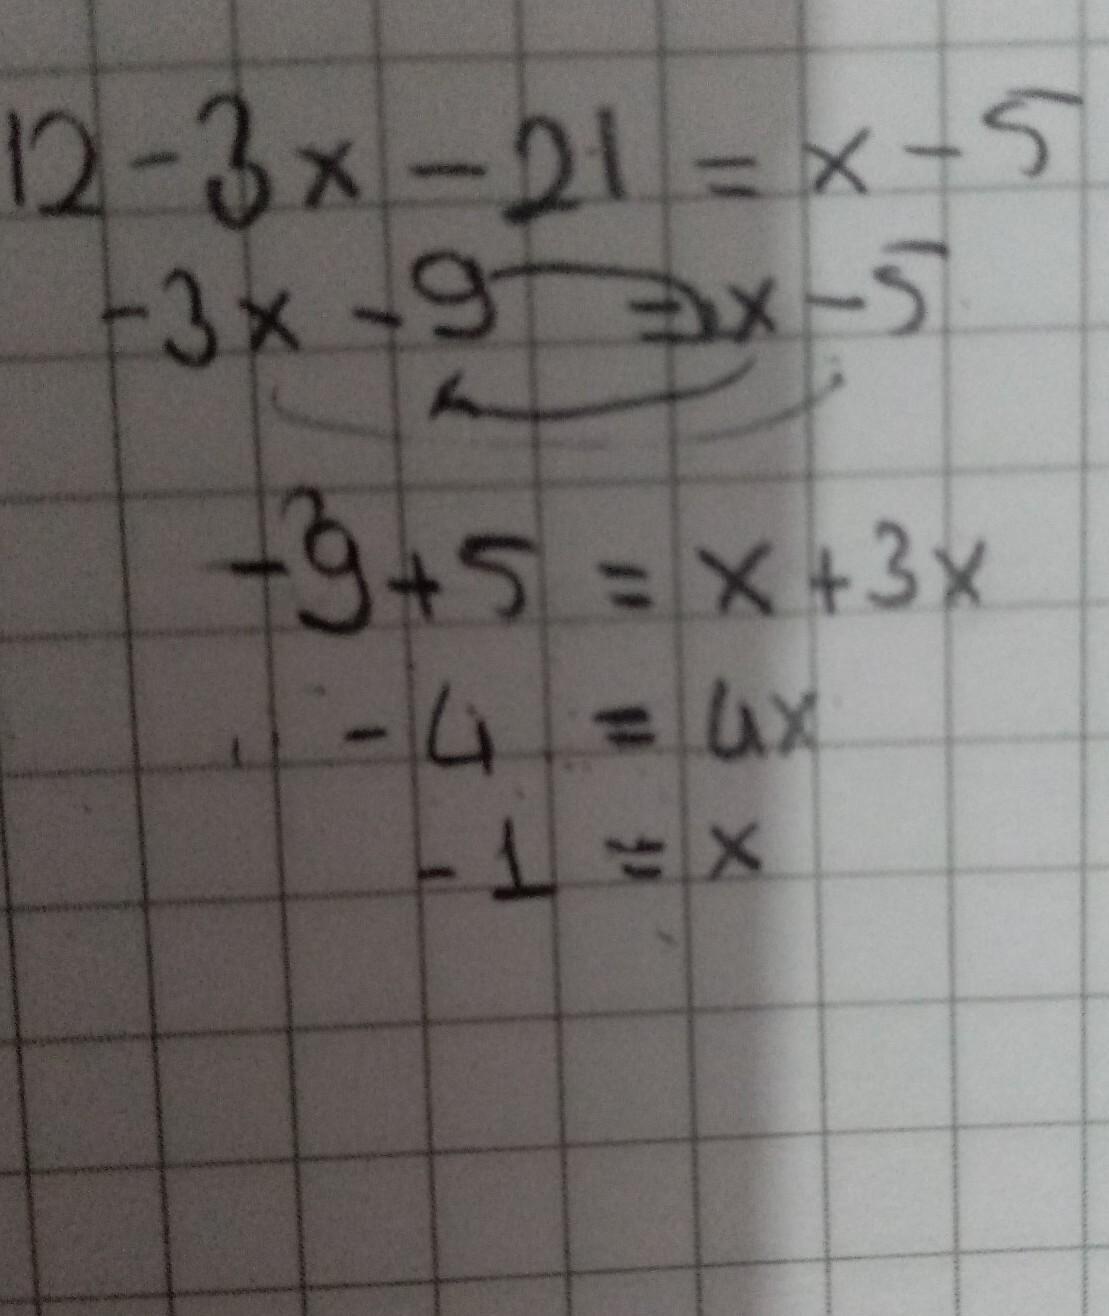 12 - 3x - 21 = x - 5
-3x - 9 = x - 5
-9 + 5 = x + 3x
-4 = 4x
-1 = x